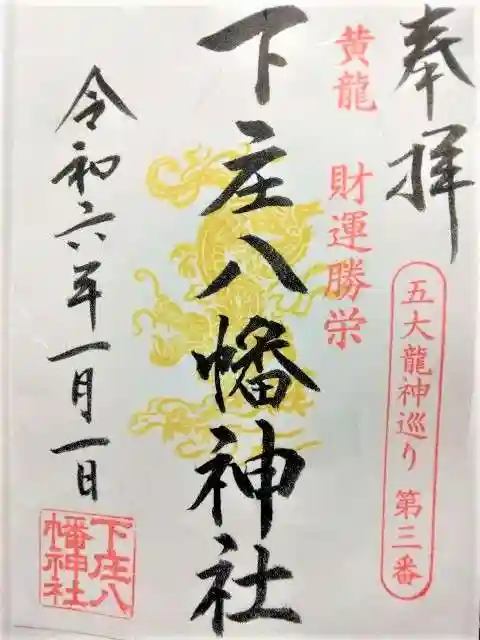 奉拝
五大龍神巡り 第三番
黄龍 財運勝栄
下庄八幡神社
令和六年一月一日
下庄八
幡神社